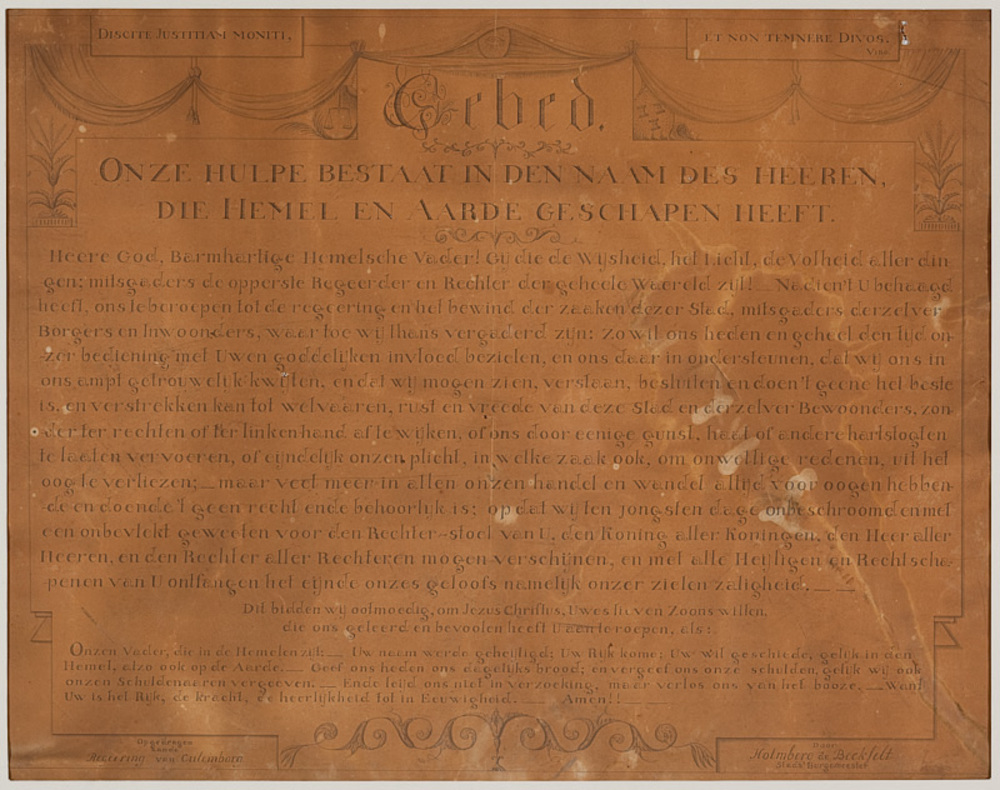 DISCITE JUSTITIAM MONITI,
ET NON TEMNERE DIVOS.
VIRG.
Gebed.
ONZE HULPE BESTAAT IN DEN NAAM DES HEEREN,
DIE HEMEL EN AARDE GESCHAPEN HEEFT.
Heere God, Barmhartige Hemelsche Vader! Gij die de Wijsheid, het Licht, de Volheid aller din-
gen; mitsgaders de opperste Regeerder en Rechter der geheele Waereld zijt! _ Nadien 't U behaagd
heeft, ons te beroepen tot de regeering en het bewind der zaaken dezer Stad, mitsgaders derzelver
Borgers en Inwoonders, waar toe wij thans vergaderd zijn: zo wil ons heden en geheel den tijd on-
-zer bediening met Uwen goddelijken invloed bezielen, en ons daar in ondersteunen, dat wij ons in
ons ampt getrouwelijk kwijten, en dat wij mogen zien, verstaan, besluiten en doen 't geene het beste
is, en verstrekken kan tot welvaaren, rust en vreede van deze Stad en derzelver Bewoonders, zon-
der ter rechten of ter linkenhand af te wijken, of ons door eenige gunst, haat of andere hartstogten
te laaten vervoeren, of eijndelijk onzen plicht, in welke zaak ook, om onwettige redenen, uit het
oog te verliezen; _ maar veel meer in allen onzen handel en wandel altijd voor oogen hebben-
-de en doende 't geen recht ende behoorlijk is: op dat wij ten jongsten dage onbeschroomd en met
een onbevlekt geweeten voor den Rechter-stoel van U, den Koning aller Koningen, den Heer aller
Heeren, en den Rechter aller Rechteren mogen verschijnen, en met alle Heijligen en Rechtscha-
penen van U ontfangen het eijnde onzes geloofs namelijk onzer zielen zaligheid. _ _
Dit bidden wij ootmoedig, om Jezus Christus, Uwes lieven Zoons willen,
die ons geleerd en bevoolen heeft U aan te roepen, als:
Onzen Vader, die in de Hemelen zijt; _ Uw naam werde geheijligd; Uw Rijk kome; Uw Wil geschiede, gelijk in den
Hemel, alzo ook op de Aarde. _ Geef ons heden ons dagelijks brood; en vergeef ons onze schulden, gelijk wij ook
onzen Schuldenaeren vergeeven. _ Ende leijd ons niet in verzoeking, maar verlos ons van het booze. _ Want
Uw is het Rijk, de kracht, de heerlijkheid tot in Eeuwigheid. _ Amen!!
Opgedragen
aan de
Regeering van Culemborg
Door
Holmberg de Beckfelt
Stads Burgemeester